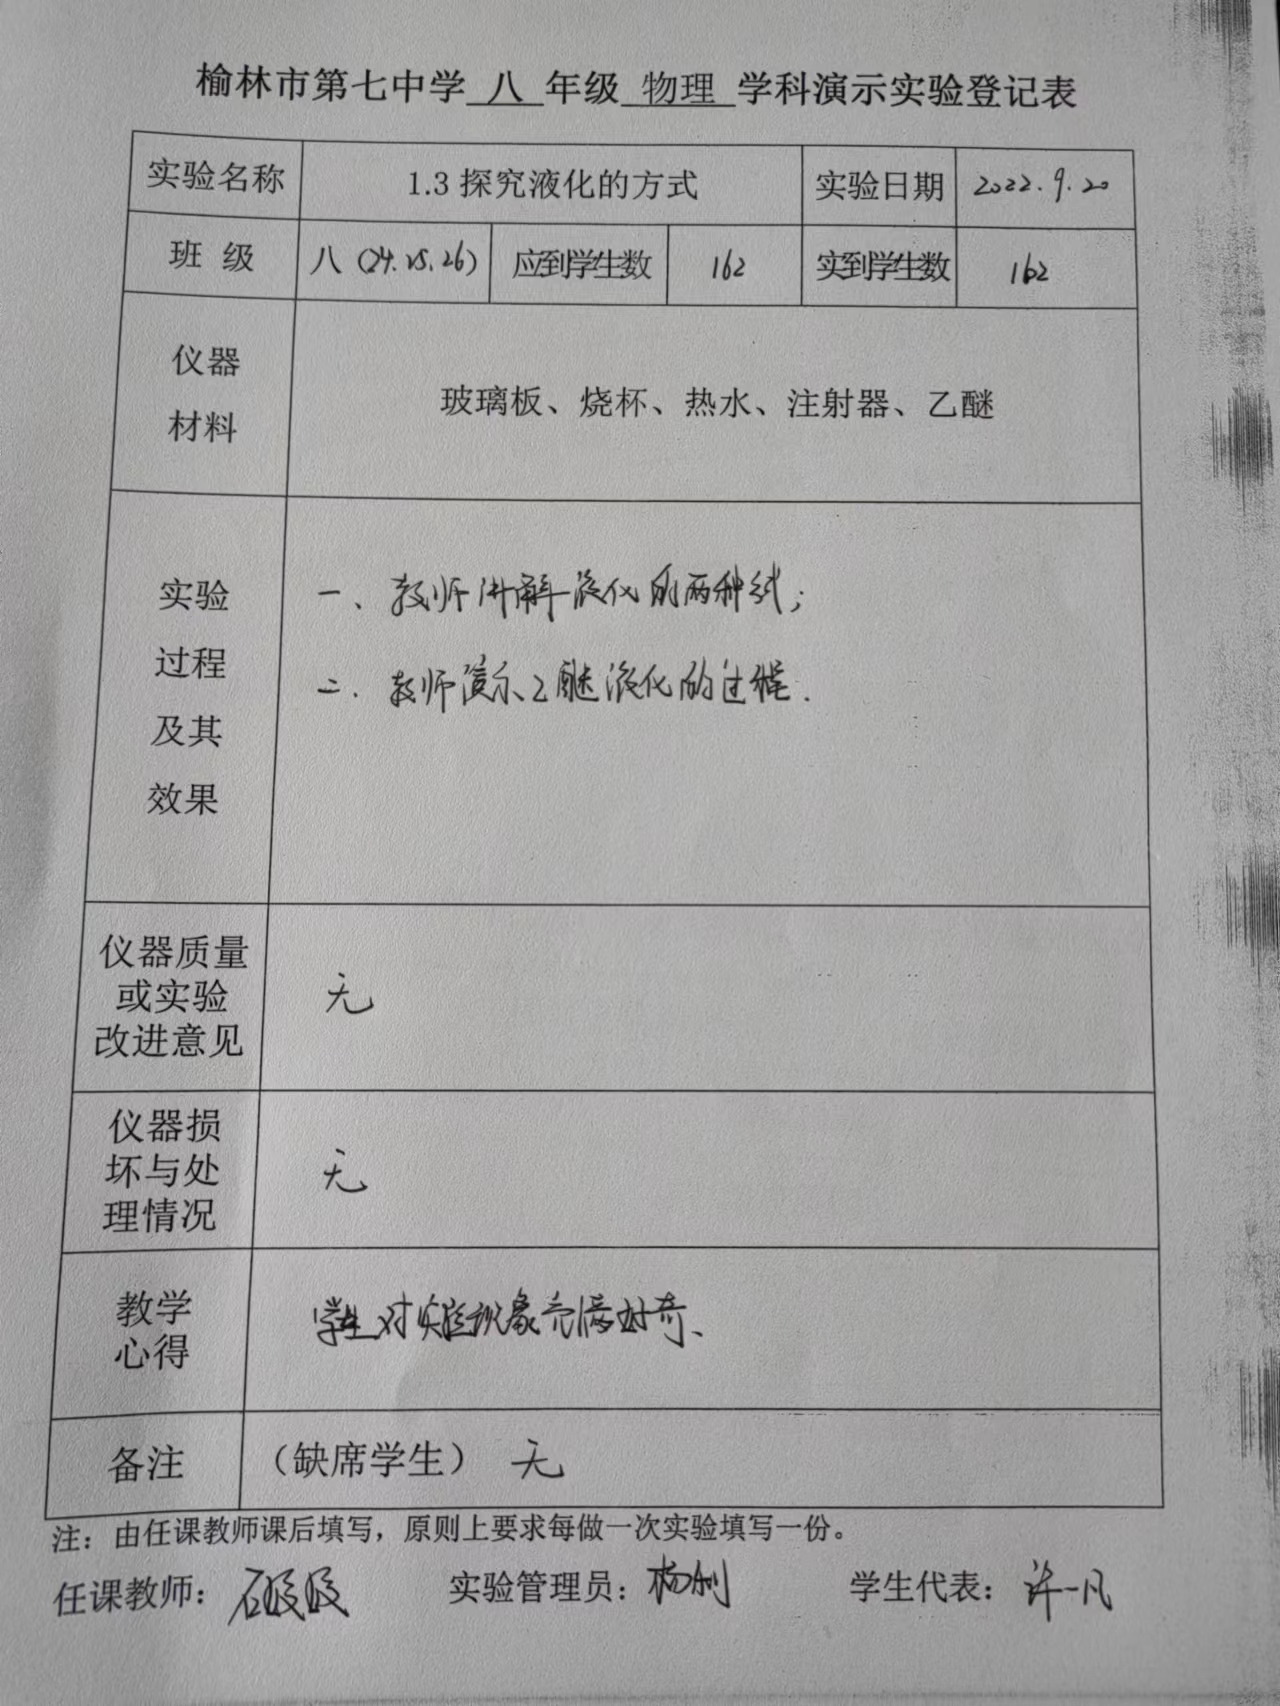 榆林市第七中学 八 年级 物理 学科演示实验登记表
实验名称 1.3 探究液化的方式 实验日期 2022.9.20
班 级 八（24.25.26） 应到学生数 162 实到学生数 162
仪器
材料
玻璃板、烧杯、热水、注射器、乙醚
实验
过程
及其
效果
一、教师讲解液化的两种方式；
二、教师演示乙醚液化的过程.
仪器质量
或实验
改进意见
无
仪器损
坏与处
理情况
无
教学
心得
学生对实验现象充满好奇、
备注 （缺席学生） 无
注：由任课教师课后填写，原则上要求每做一次实验填写一份。
任课教师： 实验管理员： 学生代表：许一凡